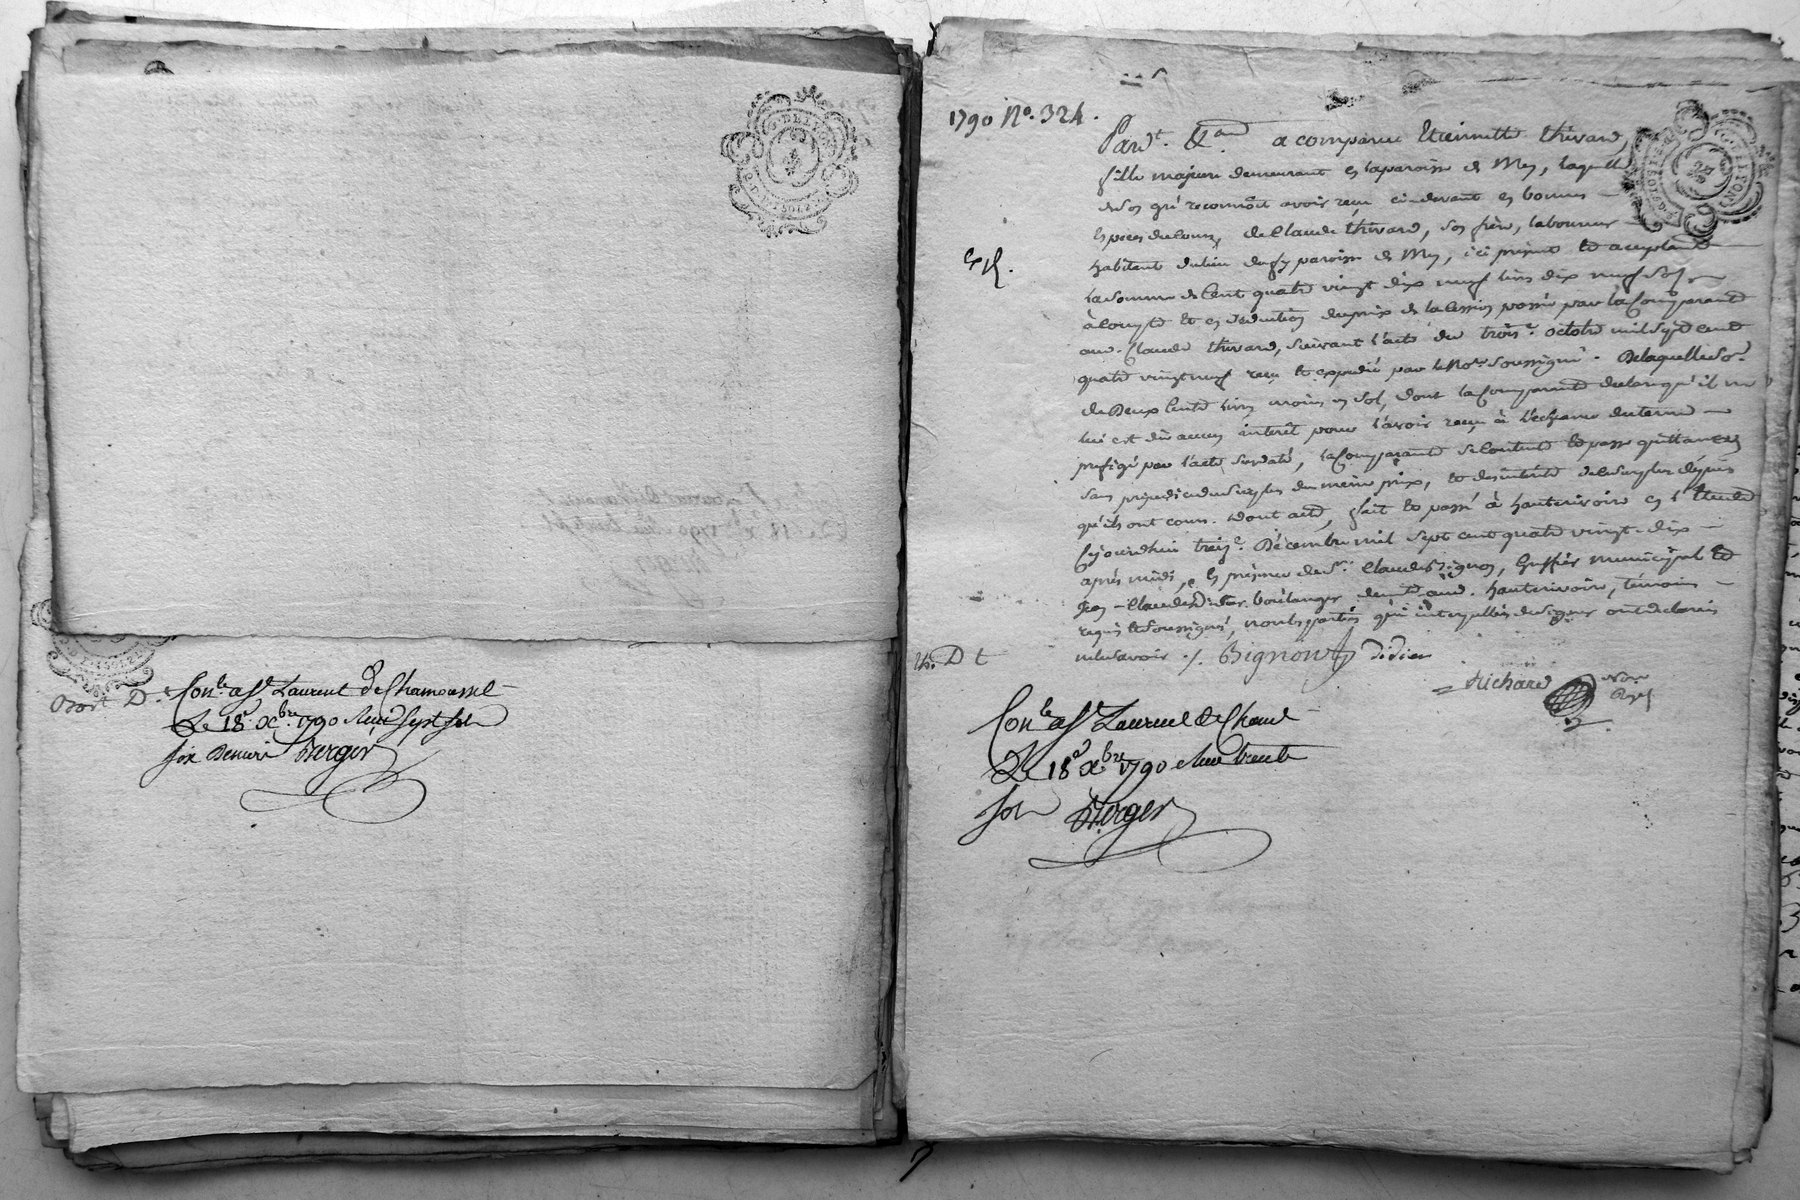 G. DE LYON
Con.le a St Laurent de Chamousset
Le 18e Xbre 1790 Reçu sept sols
six deniers Berger
1790 No. 324.
Pard.t &a. a comparu Etiennette thivard,
fille majeure demeurant en la paroisse de Mey, laquelle
de son gré reconnoit avoir reçu cidevant en bonnes
Especes de cours, de Claude thivard, son frère, laboureur
habitant du lieu paroisse de Mey, ici présent et acceptant
Exp.
la somme de Cent quatre vingt dix neuf livres dix neuf sols
à compte et en déduction du prix de la cession passée par la Comparante
aud. Claude thivard, suivant l'acte du trois.e octobre mil sept cent
quatre vingt neuf reçu et expédié par le No.re soussigné. De laquelle so.e
de Deux Cents livres moins un sol, dont la Comparante declare qu'il ne
lui est dû aucun interêt pour l'avoir reçu à l'echeance du terme
prefigé par l'acte susdaté, la Comparante se contente et passe quittance
sans prejudice du surplus du meme prix, et des interêts de ce surplus depuis
qu'ils ont cours. Dont acte, fait et passé à hauterivoire en l'Etude
cejourdhui treiz.e Décembre mil sept cent quatre vingt-dix
après midi, en présence de S.r Claude Bignon, Greffier municipal et
Jean-Claude Didier boulanger dem.t aud. hauterivoire, témoins
requis et soussignés, non les parties qui interpellées de signer ont déclaré
ne le savoir ./. Bignon didier
Richard No.re
Royal
Con.le a St Laurent de Cham.t
Le 18e Xbre 1790 Reçu trente
sols Berger